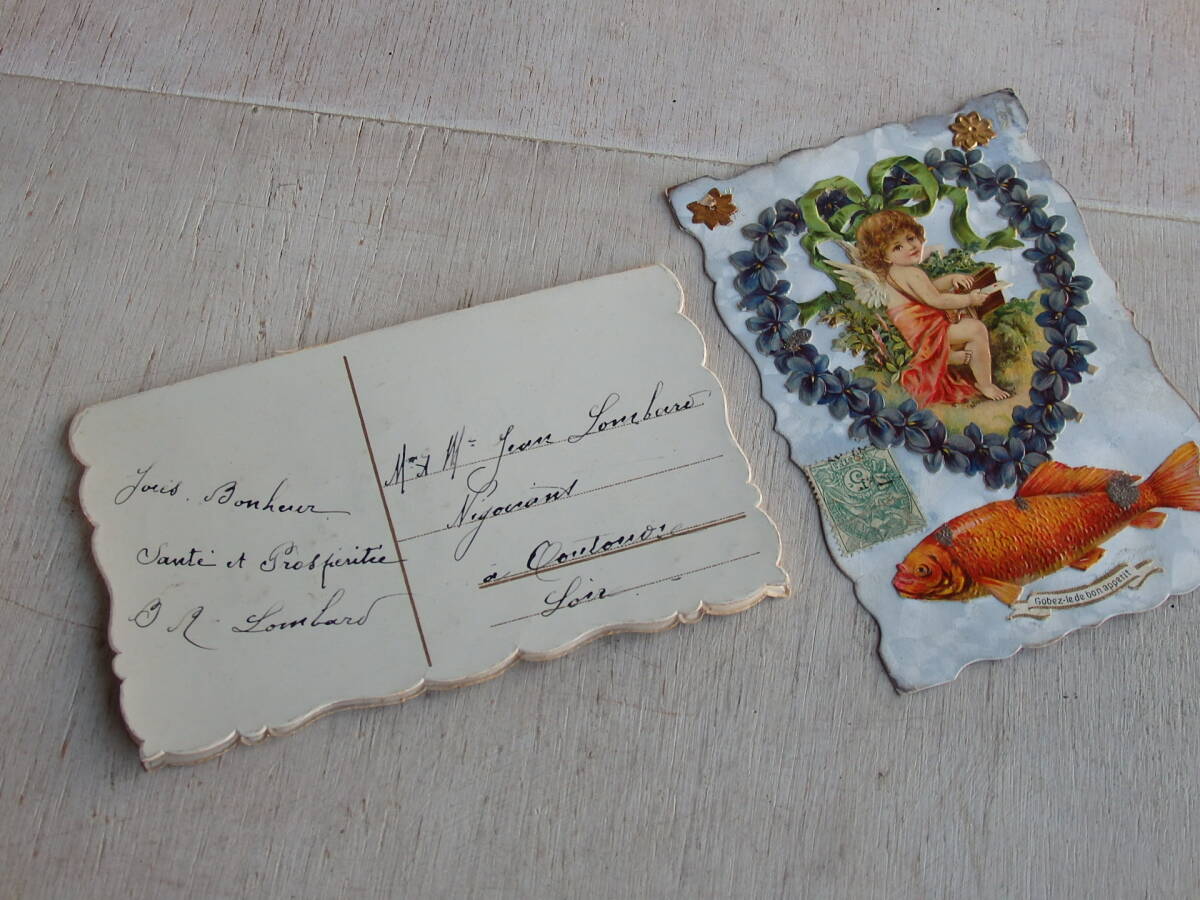 Joies. Bonheur
Santé et Prospérité
B R. Lombard
Mr & Me Jean Lombard
Négociant
à
Loir
5
Gobez-le de bon appétit